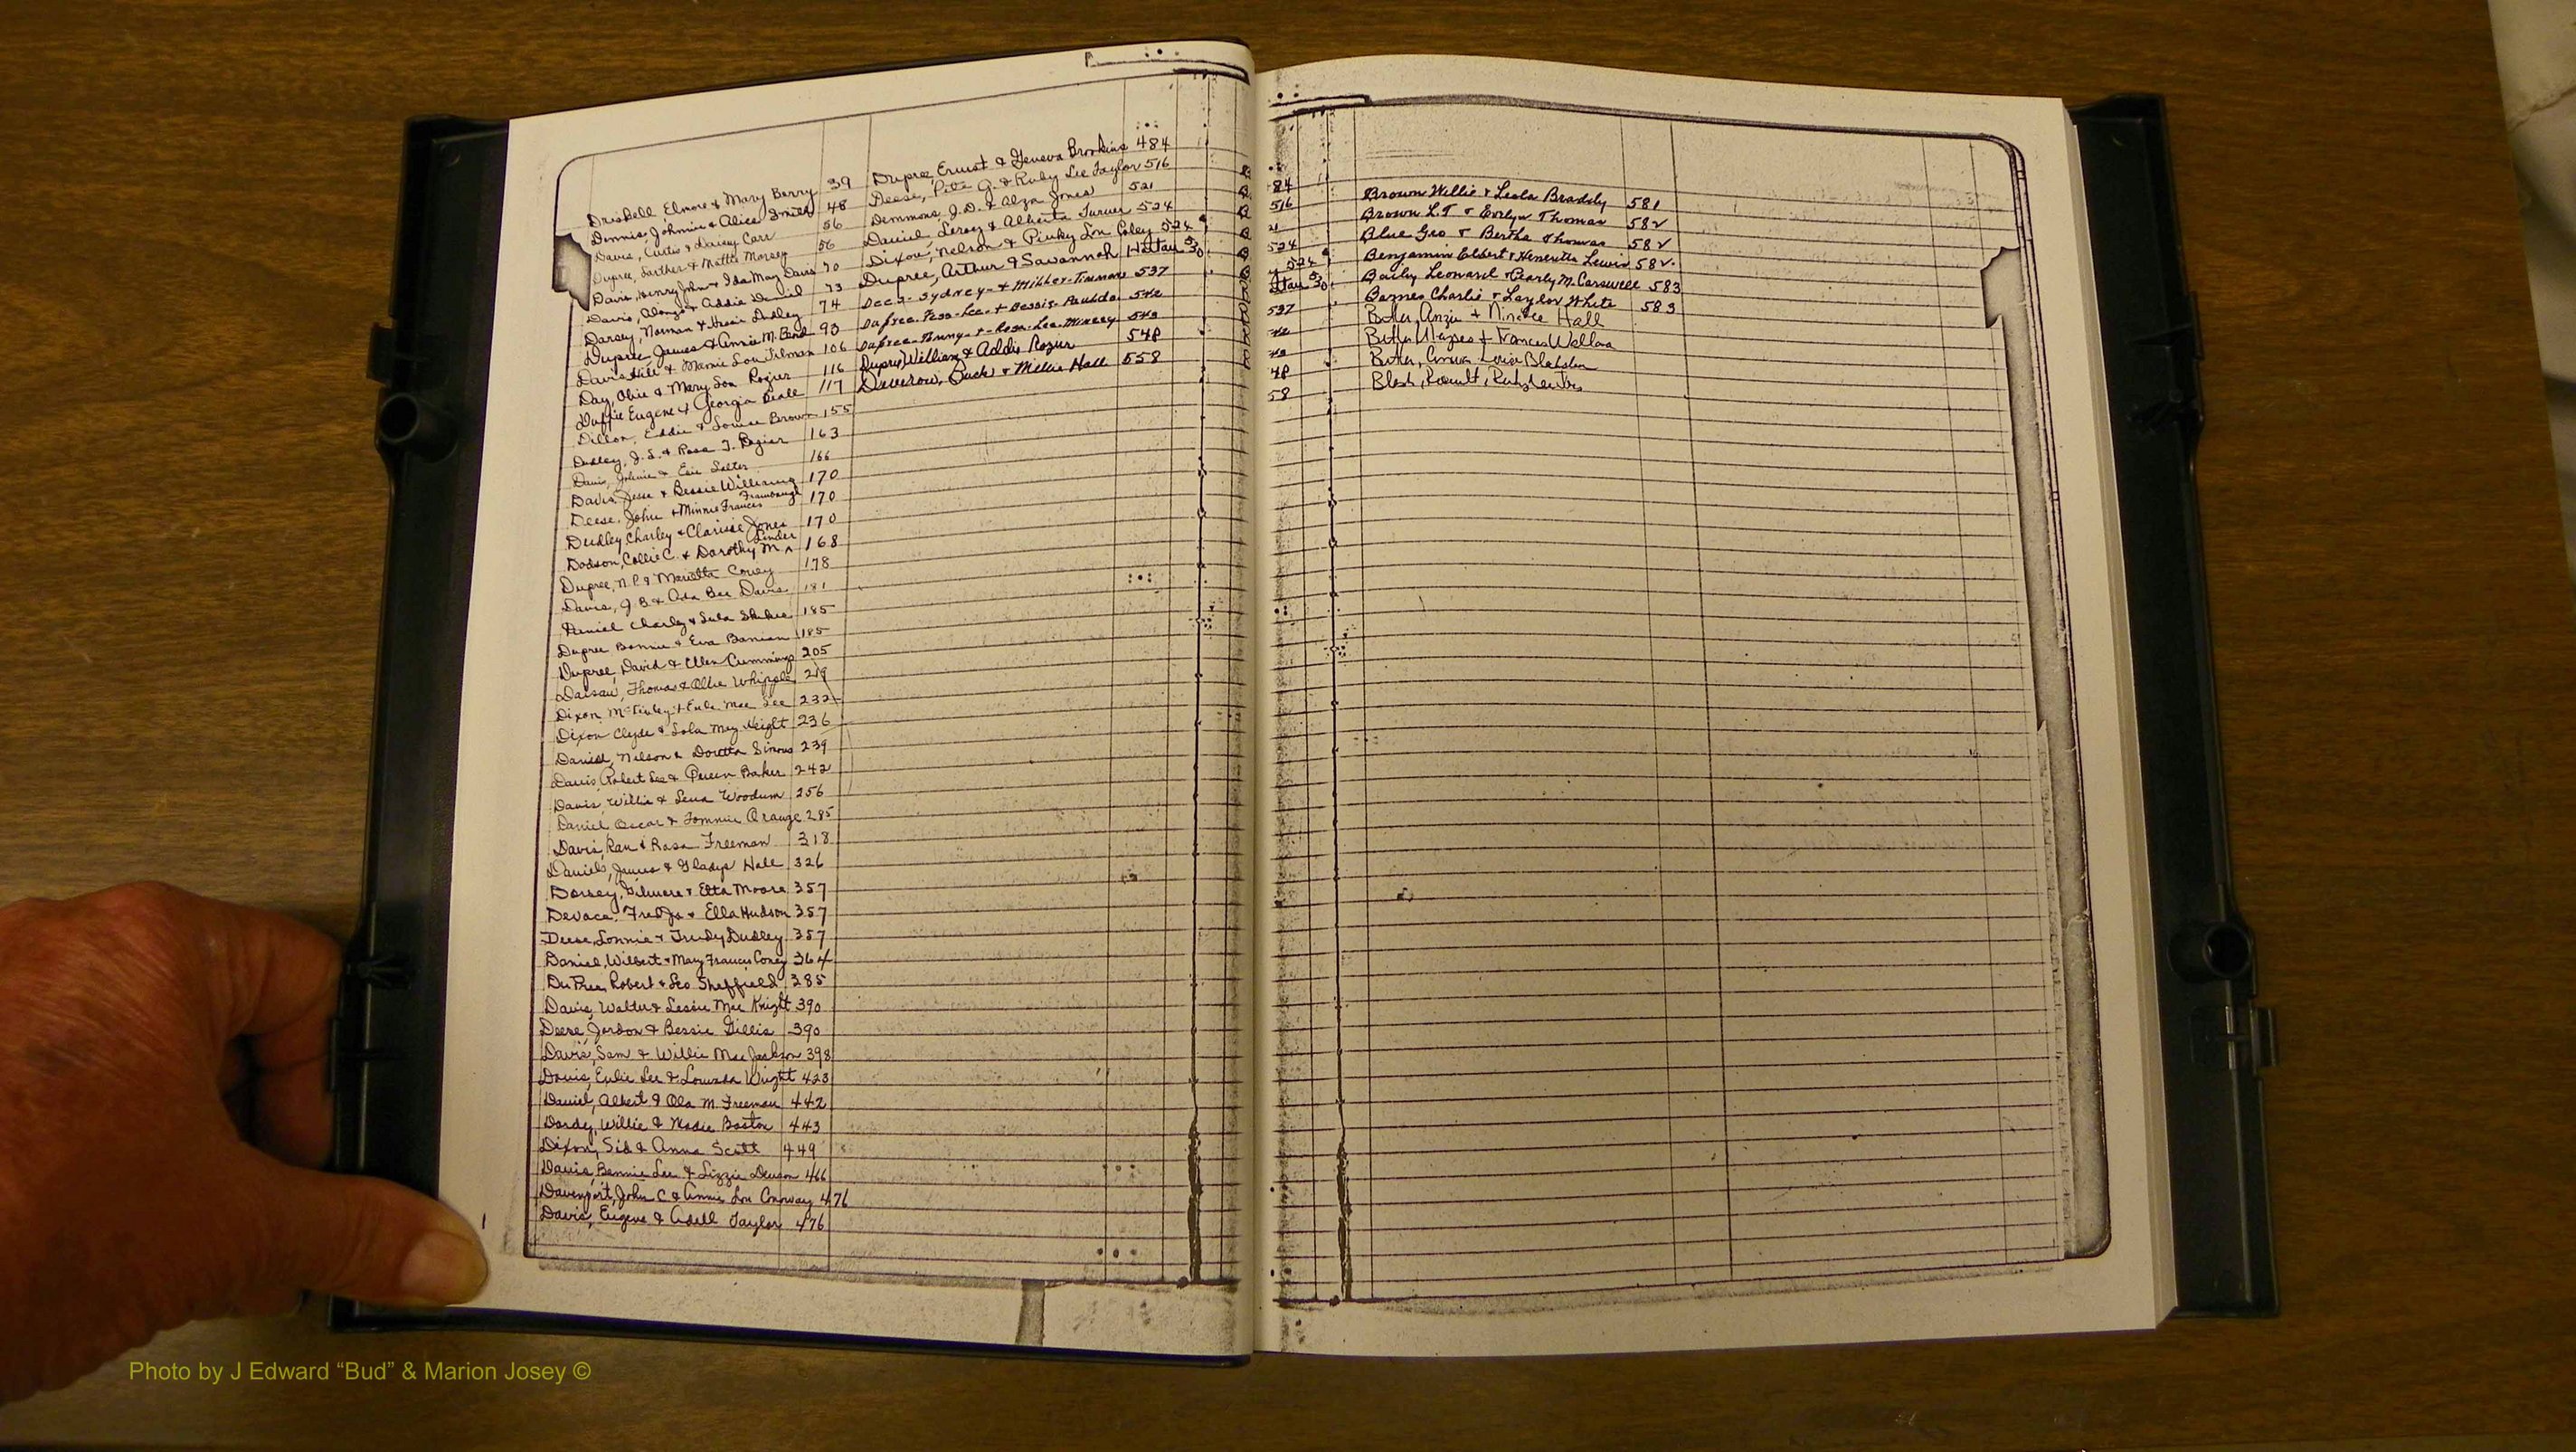 Driskell, Elmore & Mary Berry 39
Dennis, Johnnie & Alice Smith 48
Davis, Curtis & Daisey Carr 56
Dupree, Luther & Mattie Morsey 56
Davis, Henry John & Ida May Davis 70
Davis, Alonzo & Addie Daniel 73
Darsey, Norman & Hessie Dudley 74
Dupree James & Annie M. Bard 93
Davis, & Mamie Lou Tilman 106
Day, Obie & Mary Lou Rozier 116
Duffie Eugene & Georgia Beall 117
Dillon, Eddie & Louise Brown 155
Dudley, J. L. & Rosa J. Rozier 163
Davis, Johnie & Essie Salter 166
Davis, Jesse & Bessie Williams 170
Deese, John & Minnie Frances 170
Dudley, Charley & Clarisse Jones 170
Dodson, Collie C. & Dorothy M. Linder 168
Dupree, N. P. & Marietta Coney 178
Davis, J. B. & Ada Bee Davis 181
Daniel Charley & Lula 185
Dupree Bonnie & Eva 185
Dupree, David & Ellen Cummings 205
Thomas & Ollie Whipple 219
Dixon, McKinley & Eula Mae Lee 232
Dixon Clyde & Lola May Height 236
Daniel, Nelson & Doretta Simons 239
Davis, Robert Lee & Queen Baker 242
Davis, Willie & Lena Woodum 256
Daniel Oscar & Tommie Orange 285
Davis, Ran & Rosa Freeman 318
Daniels, James & Gladys Hall 326
Dorsey, Gilmore & Etta Moore 357
Devace, Fred Jr & Ella Hudson 357
Deese, Lonnie & Trudy Dudley 357
Daniel, Wilbert & Mary Francis Coney 364
DuPree, Robert & Leo Sheffield 385
Davis, Walter & Lessie Mae Knight 390
Deere, Jordon & Bessie Gillis 390
Davis, Sam & Willie Mae Jackson 398
Davis, Eulie Lee & Lounda Wright 423
Daniel, Albert & Ola M. Freeman 442
Dordy, Willie & Madie Boston 443
Dixon, Sid & Anna Scott 449
Davis, Bennie Lee & Lizzie Denson 466
Davenport, John C & Annie Lou Conoway 476
Davis, Eugene & Adell Taylor 476
Dupree, Ernest & Geneva Brookins 484
Deese, Pete G. & Ruby Lee Taylor 516
Demmons, J. D. & Alza Jones 521
Daniel, Leroy & Alberta Turner 524
Dixon, Nelson & Pinky Lou Coley 526
Dupree, Arthur & Savannah 530
Dees - Sydney - & - Timmons 537
Dupree - - Lee - & Bessie - 542
Dupree - Tommy - & - Rosa - Lee - Mincey 543
Dupree, William & Addie Rozur 548
Deverow, Buck & Millie Hall 558
84
516
21
524
526
530
537
48
58
Brown Willie & Leola Braddy 581
Brown L.T & Evelyn Thomas 582
Blue Geo & Bertha Thomas 582
Benjamin Elbert & Henrietta Lewis 582
Baily Leonard & Pearly M. Carswell 583
Barnes Charlie & Laylor White 583
Butler, Anzie & Hall
Butler, Ulysses & Frances
Butler,
Blash,
Photo by J Edward “Bud” & Marion Josey ©